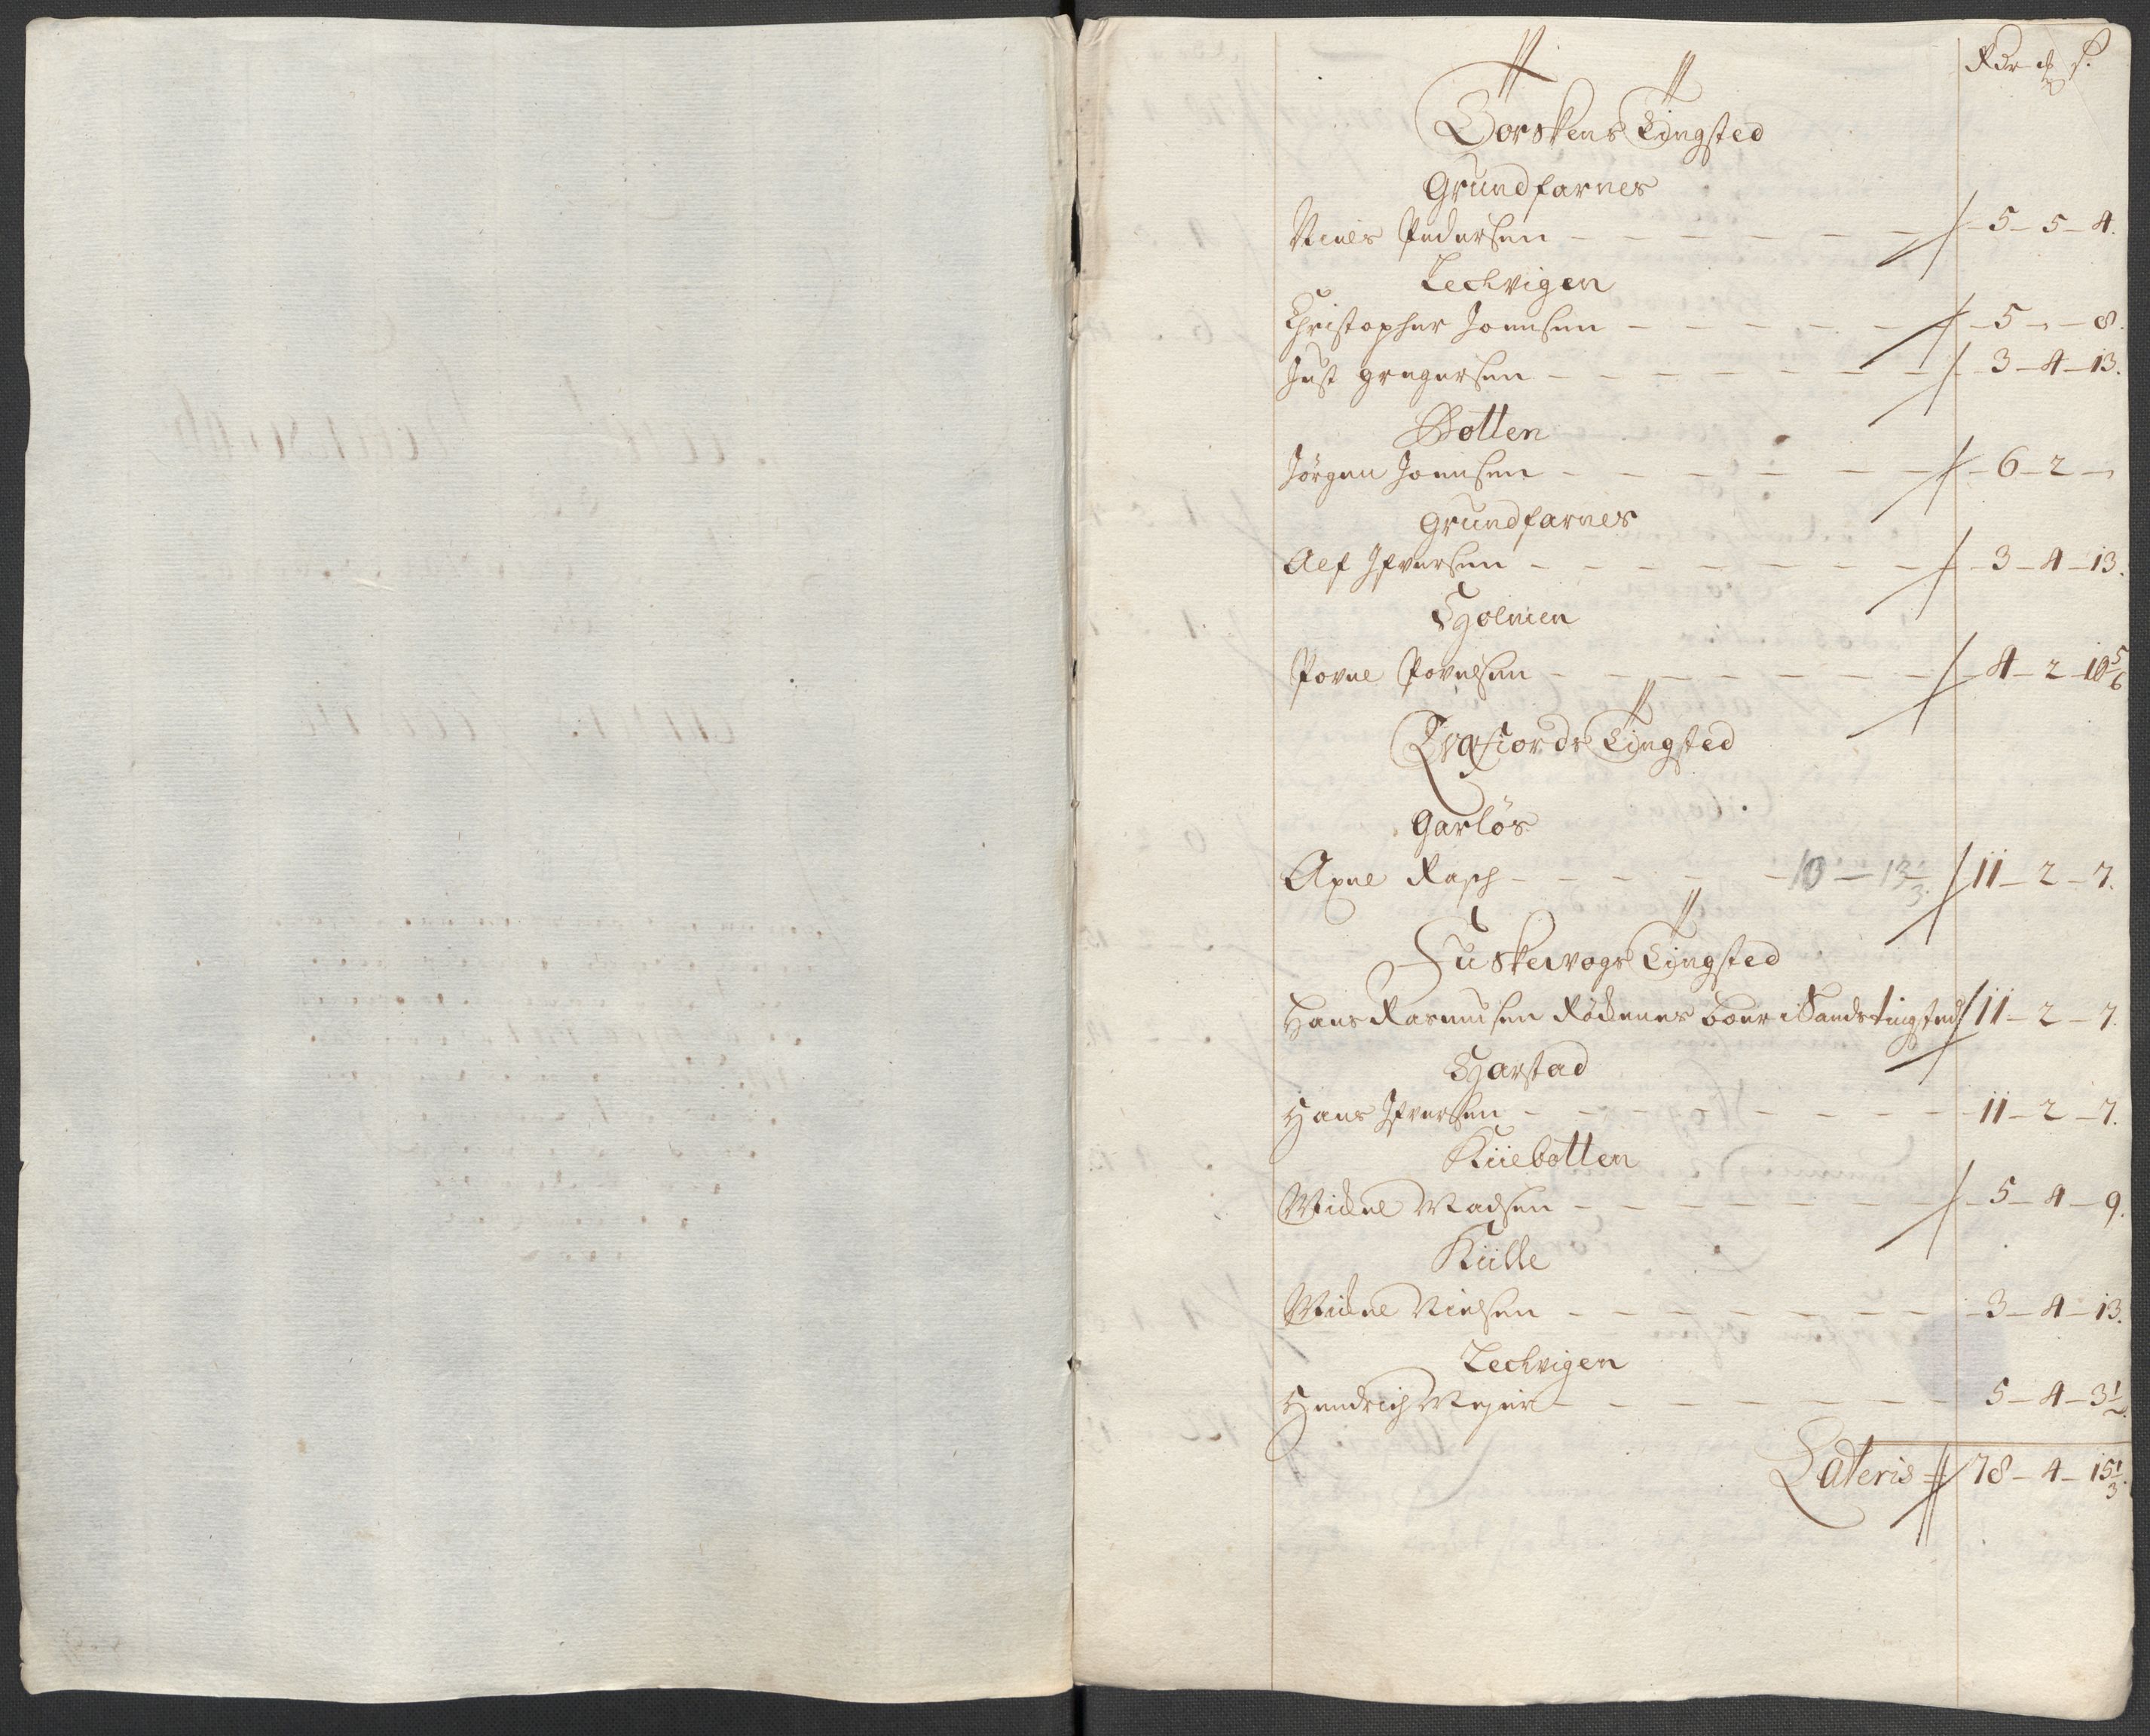 Rdr ₰ s.
Torskens Tingsted
Grundfarnes
Niels Pedersen - 5 - 5 - 4.
Lechvigen
Christopher Joensen - 5 - - 8.
Just gregersen - 3 - 4 - 13.
Botten
Jörgen Joensen - 6 - 2 -
Grundfarnes
Olef Ifversen - 3 - 4 - 13.
Holmen
Povel Povelsen - 4 - 2 - 10 5/6
Qvæfiords Tingsted
Garlös
Axel Rasch - 10 - 13 1/3. 11 - 2 - 7.
Fuskevogs Tingsted
Hans Rasmusen Röckenes boer i Sands tingsted 11 - 2 - 7.
Harstad
Hans Ifversen - 11 - 2 - 7.
Kiiebotten
Mickel Madsen - 5 - 4 - 9.
Kiille
Mickel Nielsen - 3 - 4 - 13.
Lechvigen
Hendrich Mejer - 5 - 4 - 3 1/2.
Lateris 78 - 4 - 15 1/3.